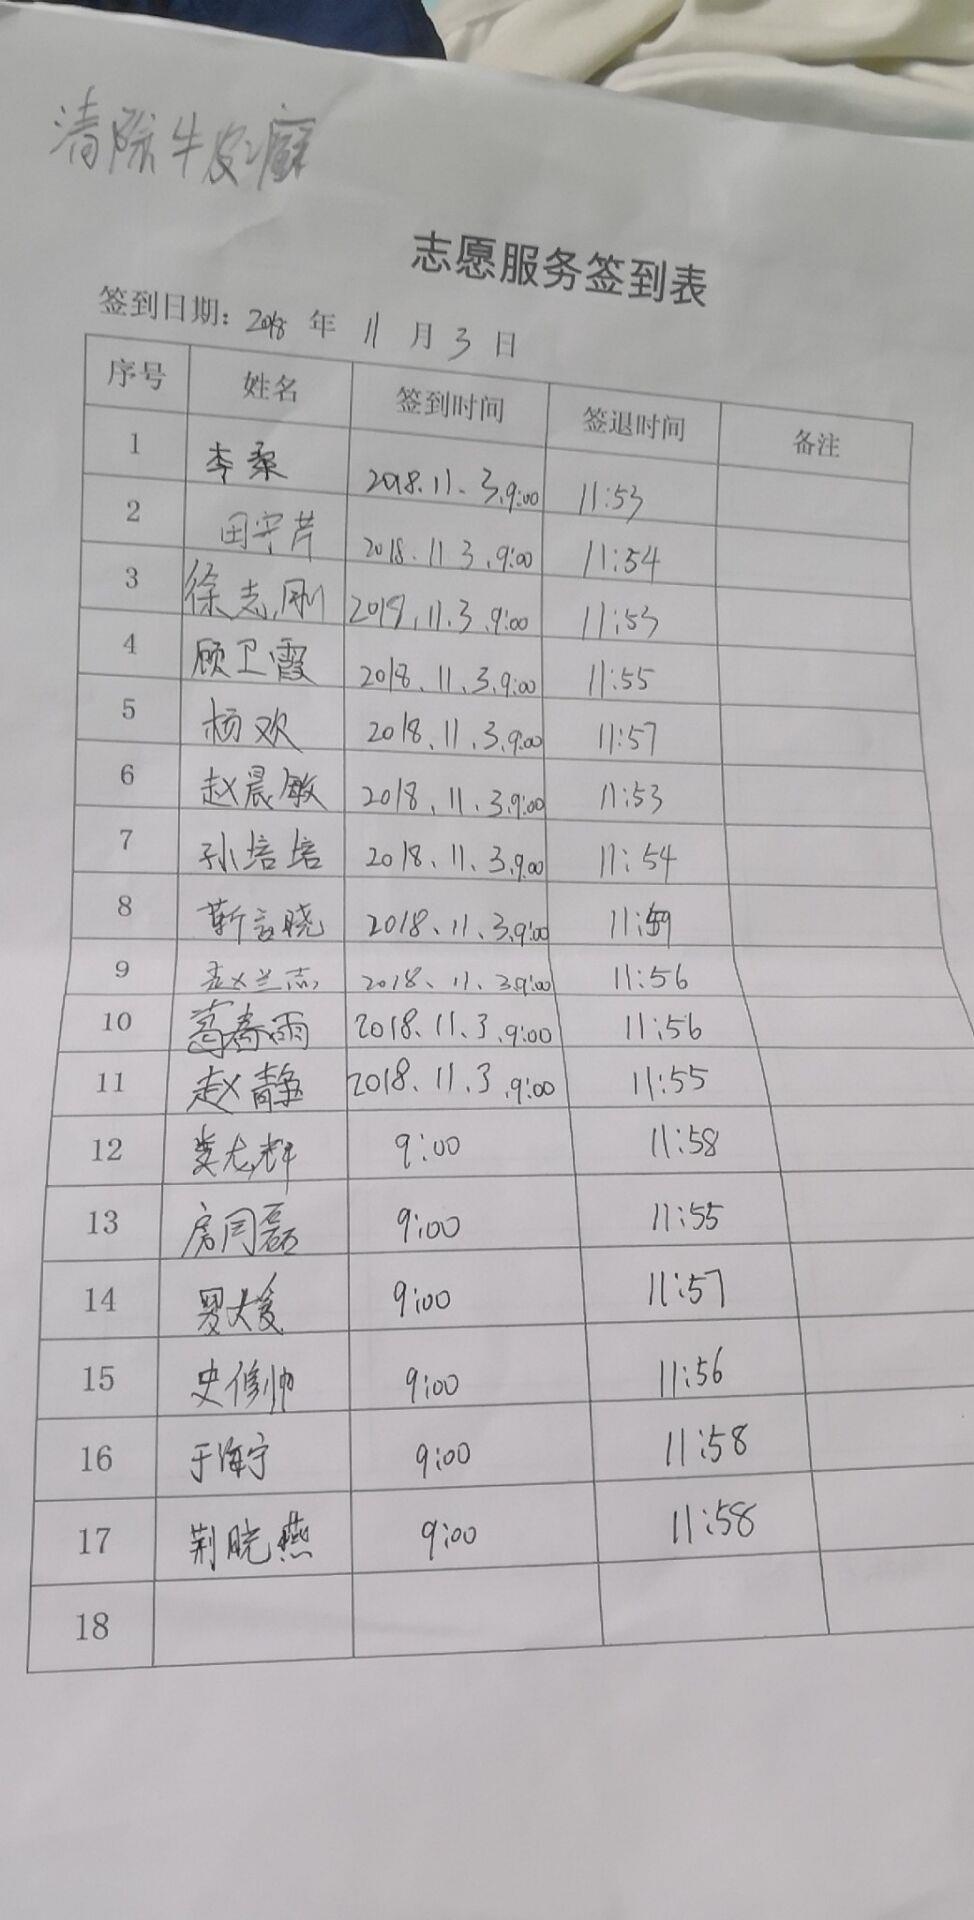 清除牛皮癣
志愿服务签到表
签到日期: 2018 年 11 月 3 日
序号 姓名 签到时间 签退时间 备注
1 李桑 2018.11.3.9:00 11:53
2 田守芹 2018.11.3.9:00 11:54
3 徐志刚 2018.11.3.9:00 11:53
4 顾卫霞 2018.11.3.9:00 11:55
5 杨欢 2018.11.3.9:00 11:57
6 赵晨敏 2018.11.3.9:00 11:53
7 孙培培 2018.11.3.9:00 11:54
8 2018.11.3.9:00 11:59
9 孟兰志 2018.11.3.9:00 11:56
10 葛春雨 2018.11.3.9:00 11:56
11 赵静 2018.11.3.9:00 11:55
12 娄尤辉 9:00 11:58
13 房闫磊 9:00 11:55
14 9:00 11:57
15 史修帅 9:00 11:56
16 于海宁 9:00 11:58
17 荆晓燕 9:00 11:58
18